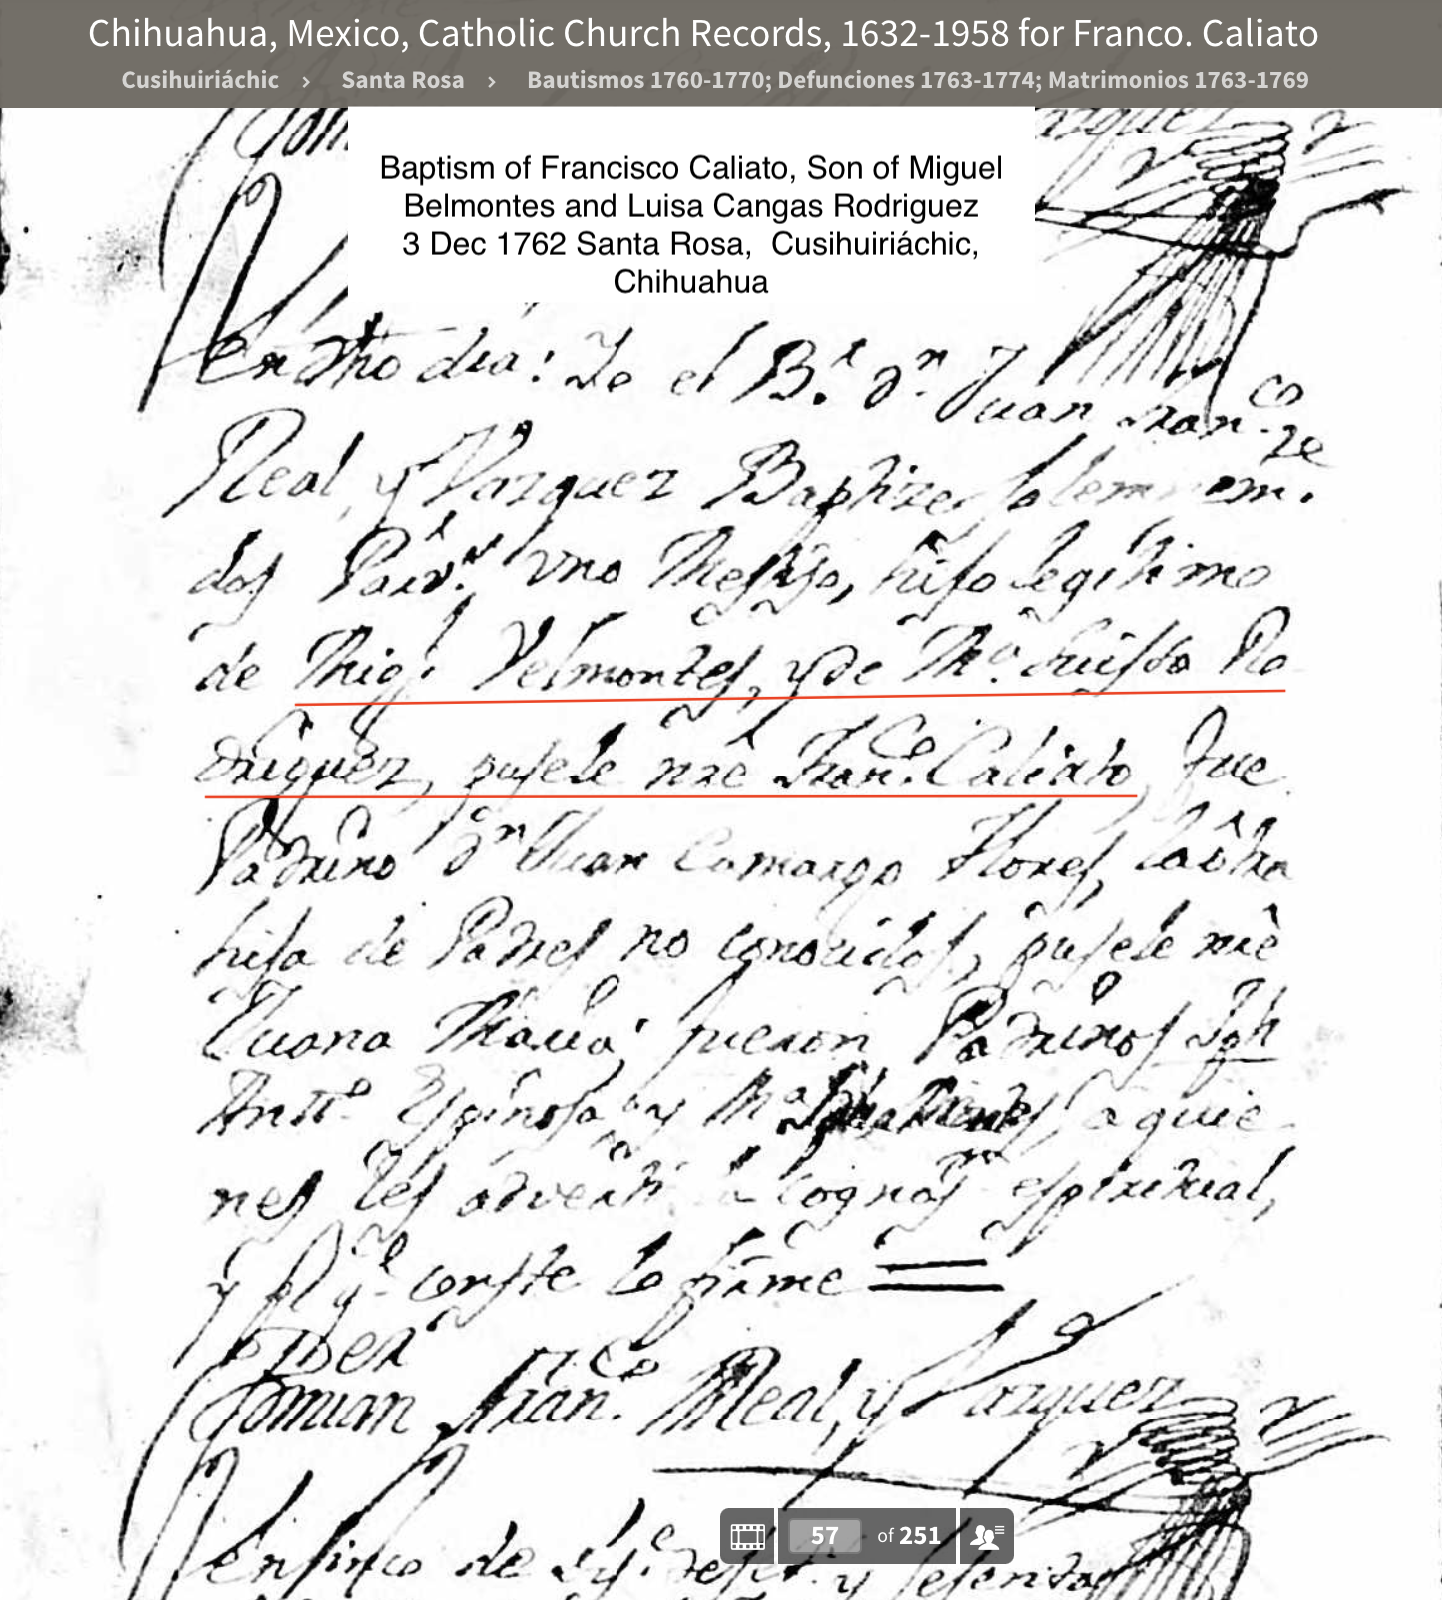 Chihuahua, Mexico, Catholic Church Records, 1632-1958 for Franco. Caliato
Cusihuiriáchic > Santa Rosa > Bautismos 1760-1770; Defunciones 1763-1774; Matrimonios 1763-1769
Baptism of Francisco Caliato, Son of Miguel
Belmontes and Luisa Cangas Rodriguez
3 Dec 1762 Santa Rosa, Cusihuiriáchic,
Chihuahua
en dho dia: Yo el B.r dn Juan Franco
Real y Vazquez Baptize solemnem.te
dos Parv.s uno Mestiso, hijo legitimo
de Mig.l Velmontes, y de Ma. Luissa Ro
driguez, pusele nre Franco. Caliato, fue
Padrino dn Juan Camargo Flores, la otra
hija de Padres no conocidos, pusele nre
Juana Maria; fueron Padrinos Jph
Antto. Espinosa y Ma a quie
nes les adverti la cognaon espiritual,
y pa qe conste lo firme =
Juan Franco. Real, y Vazquez
en sinco de y sesenta
57 of 251